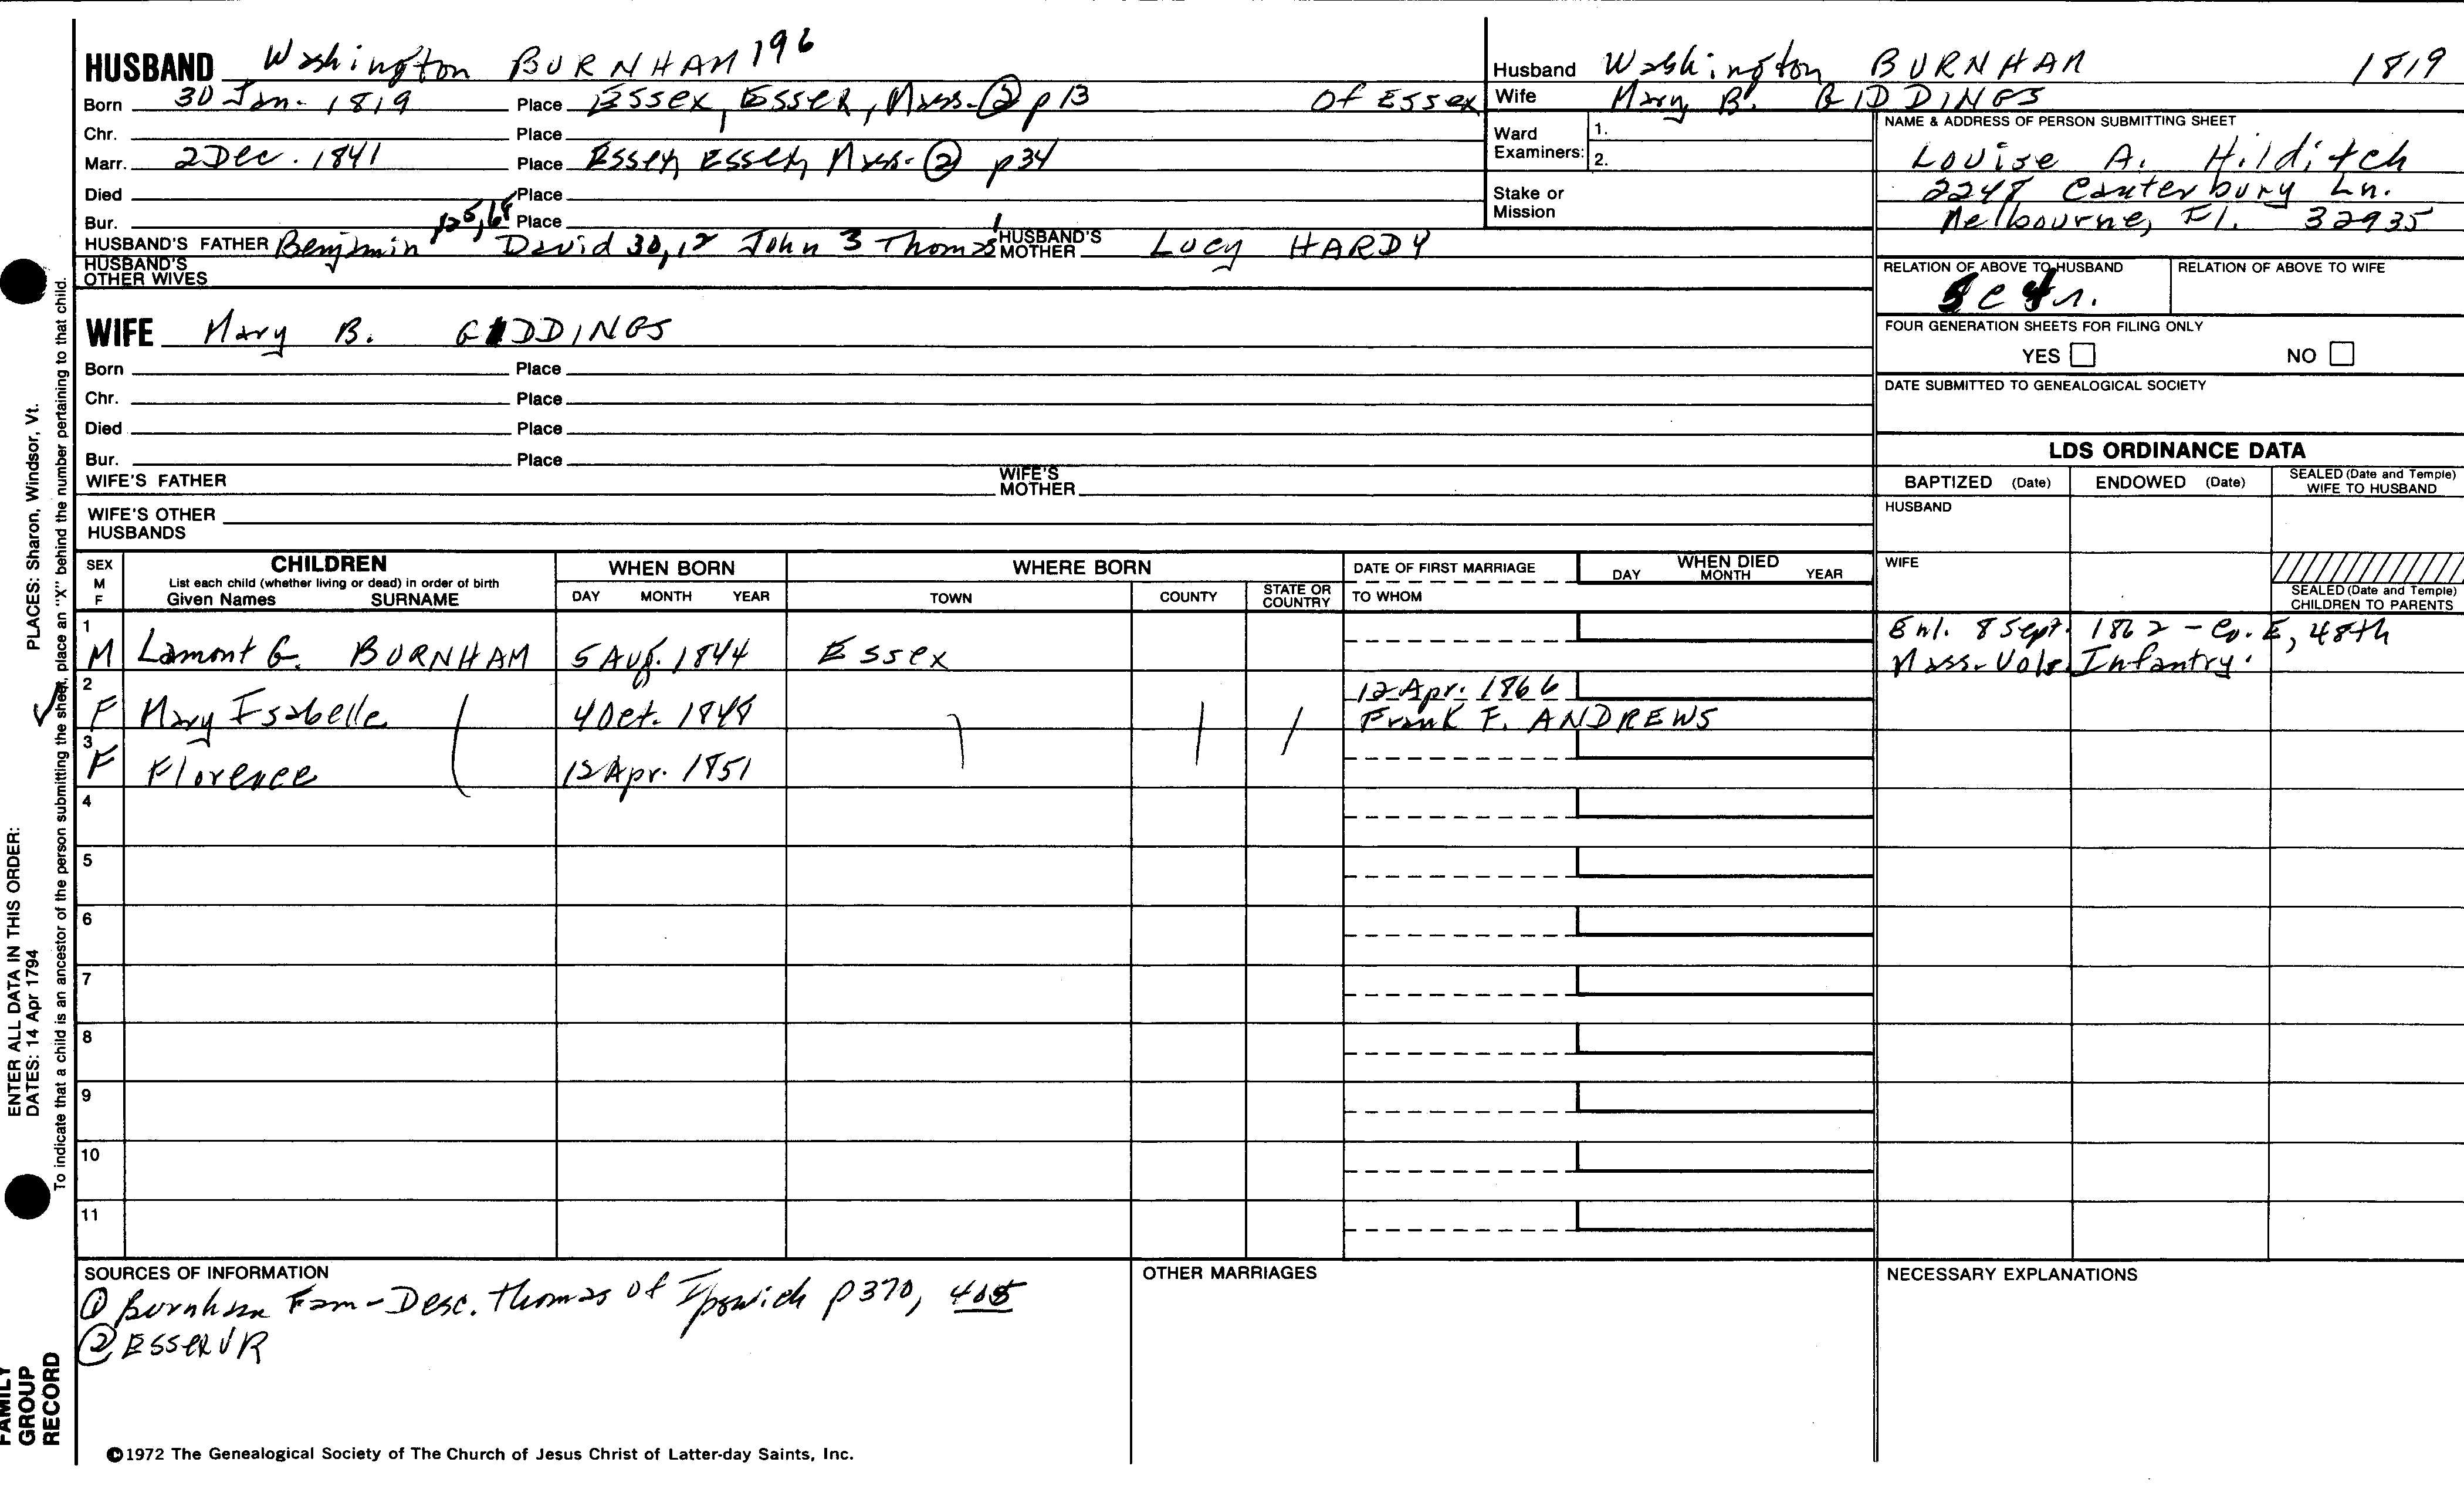 HUSBAND Washington BURNHAM 196
Born 30 Jan. 1819 Place Essex, Essex, Mass. ② p 13 Of Essex
Chr. Place
Marr. 2 Dec. 1841 Place Essex, Essex, Mass. ② p 34
Died Place
Bur. Place
HUSBAND'S FATHER Benjamin 125,68 David 30,12 John 3 Thomas 1 HUSBAND'S MOTHER Lucy HARDY
HUSBAND'S OTHER WIVES
WIFE Mary B. GIDDINGS
Born Place
Chr. Place
Died Place
Bur. Place
WIFE'S FATHER WIFE'S MOTHER
WIFE'S OTHER HUSBANDS
Husband Washington BURNHAM 1819
Wife Mary B. GIDDINGS
Ward Examiners: 1.
2.
Stake or Mission
NAME & ADDRESS OF PERSON SUBMITTING SHEET
Louise A. Hilditch
2248 Canterbury Ln.
Melbourne, Fl. 32935
RELATION OF ABOVE TO HUSBAND RELATION OF ABOVE TO WIFE
FOUR GENERATION SHEETS FOR FILING ONLY
YES NO
DATE SUBMITTED TO GENEALOGICAL SOCIETY
LDS ORDINANCE DATA
BAPTIZED (Date) ENDOWED (Date) SEALED (Date and Temple) WIFE TO HUSBAND
HUSBAND
WIFE
SEALED (Date and Temple) CHILDREN TO PARENTS
SEX M F CHILDREN WHEN BORN WHERE BORN DATE OF FIRST MARRIAGE WHEN DIED
List each child (whether living or dead) in order of birth
Given Names SURNAME DAY MONTH YEAR TOWN COUNTY STATE OR COUNTRY TO WHOM DAY MONTH YEAR
1 M Lamont G. BURNHAM 5 Aug. 1844 Essex Enl. 8 Sept. 1862 - Co. E, 48th
Mass. Vols. Infantry.
2 F Mary Isabelle ( 4 Oct. 1848 ) 12 Apr. 1866
Frank F. ANDREWS
3 F Florence 12 Apr. 1851
4
5
6
7
8
9
10
11
SOURCES OF INFORMATION
① Burnham Fam - Desc. Thomas of Ipswich p 370, 405
② Essex VR
OTHER MARRIAGES
NECESSARY EXPLANATIONS
©1972 The Genealogical Society of The Church of Jesus Christ of Latter-day Saints, Inc.
FAMILY GROUP RECORD
ENTER ALL DATA IN THIS ORDER:
DATES: 14 Apr 1794 PLACES: Sharon, Windsor, Vt.
To indicate that a child is an ancestor of the person submitting the sheet, place an "X" behind the number pertaining to that child.